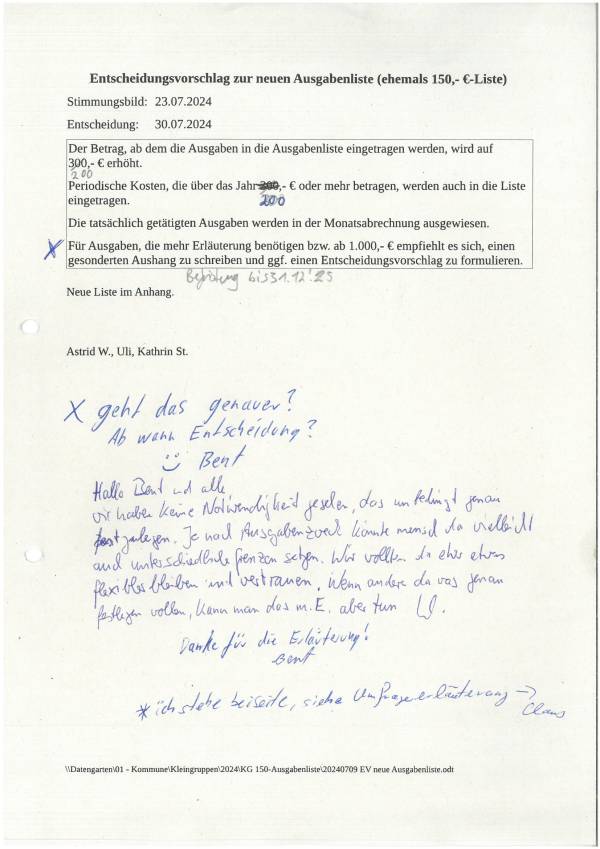 Entscheidungsvorschlag zur neuen Ausgabenliste (ehemals 150,- €-Liste)
Stimmungsbild: 23.07.2024
Entscheidung: 30.07.2024
Der Betrag, ab dem die Ausgaben in die Ausgabenliste eingetragen werden, wird auf
300,- € erhöht.
200
Periodische Kosten, die über das Jahr 300,- € oder mehr betragen, werden auch in die Liste
eingetragen. 200
Die tatsächlich getätigten Ausgaben werden in der Monatsabrechnung ausgewiesen.
X Für Ausgaben, die mehr Erläuterung benötigen bzw. ab 1.000,- € empfiehlt es sich, einen
gesonderten Aushang zu schreiben und ggf. einen Entscheidungsvorschlag zu formulieren.
Befristung bis 31.12.'25
Neue Liste im Anhang.
Astrid W., Uli, Kathrin St.
X geht das genauer?
Ab wann Entscheidung?
Bent
Hallo Bent und alle
wir haben keine Notwendigkeit gesehen, das unbedingt genau
festzulegen. Je nach Ausgabenzweck könnte mensch da vielleicht
auch unterschiedliche Grenzen setzen. Wir wollten da eher etwas
flexibles bleiben und vertrauen. Wenn andere da was genau
festlegen wollen, kann man das m.E. aber tun U.
Danke für die Erläuterung!
Bent
* ich stehe beiseite, siehe Umfrageerläuterung →
Claus
\\Datengarten\01 - Kommune\Kleingruppen\2024\KG 150-Ausgabenliste\20240709 EV neue Ausgabenliste.odt